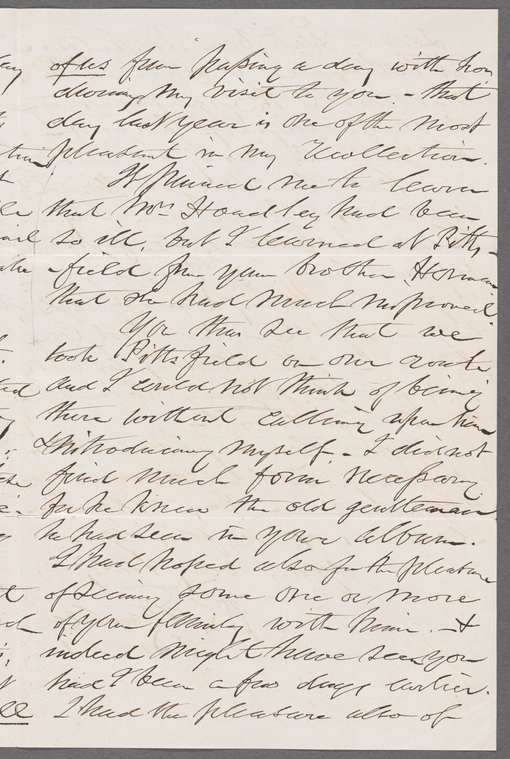 of us from passing a day with him
during my visit to you - that
day last year is one of the most
pleasant in my recollection.
It pained me to learn
that Mrs Hoadley had been
so ill, but I learned at Pitts-
-field from your brother Herman
that she had much improved.
You thus see that we
took Pittsfield on our route
and I could not think of being
there without calling upon him
& introducing myself - I did not
find much form necessary
for he knew the old gentleman
he had seen in your album.
I had hoped also for the pleasure
of seeing some one or more
of your family with him. - &
indeed might have seen you
had I been a few days earlier.
I had the pleasure also of